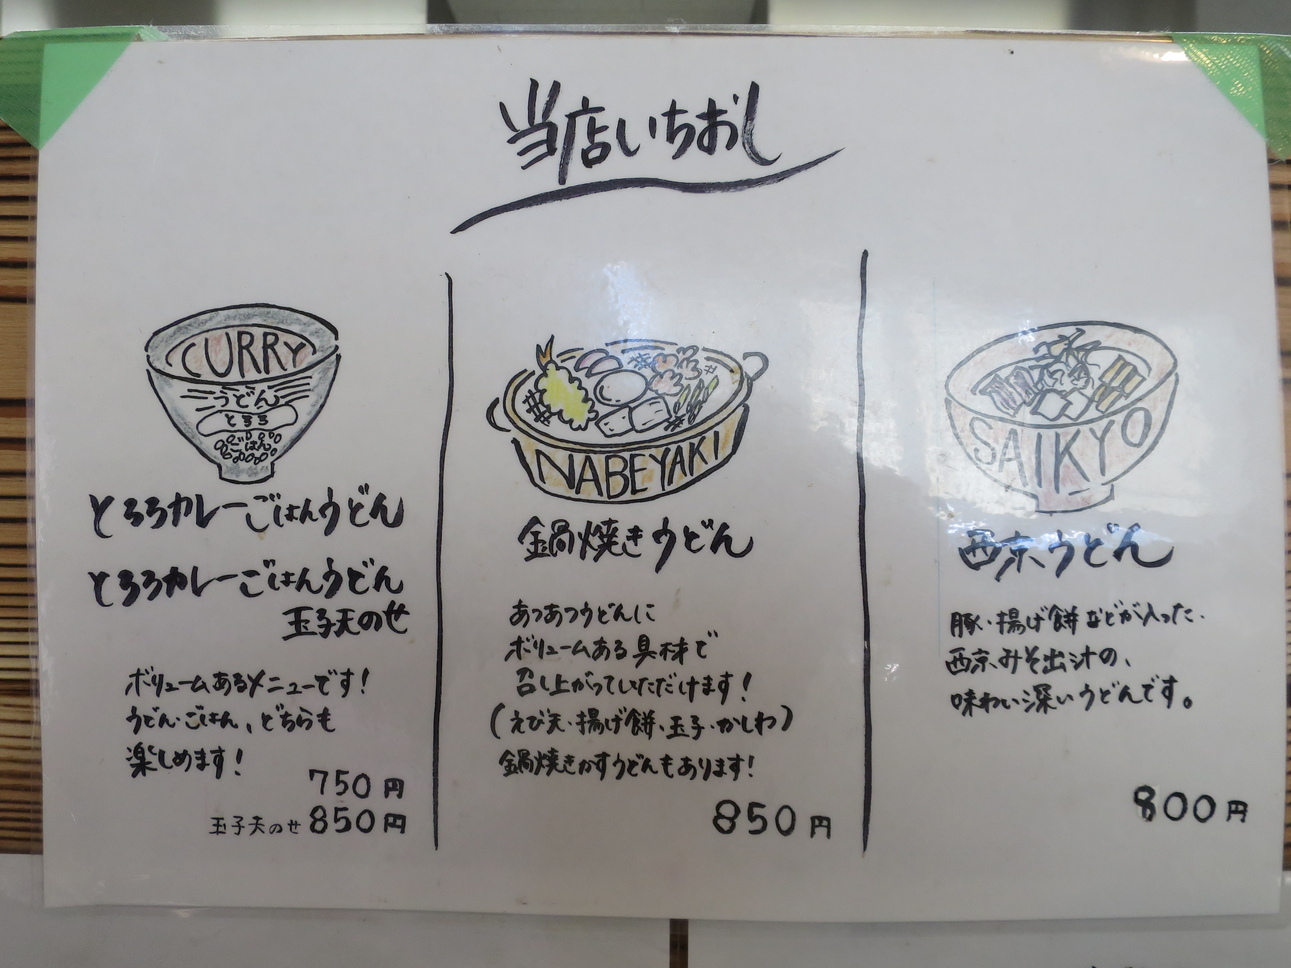 当店いちおし
CURRY
うどん
とろろ
ごはん
とろろカレーごはんうどん
とろろカレーごはんうどん
玉子天のせ
ボリュームあるメニューです!
うどん・ごはん、どちらも
楽しめます!
750円
玉子天のせ 850円
NABEYAKI
鍋焼きうどん
あつあつうどんに
ボリュームある具材で
召し上がっていただけます!
(えび天・揚げ餅、玉子・かしわ)
鍋焼きかすうどんもあります!
850円
SAIKYO
西京うどん
豚・揚げ餅などが入った、
西京みそ出汁の、
味わい深いうどんです。
800円